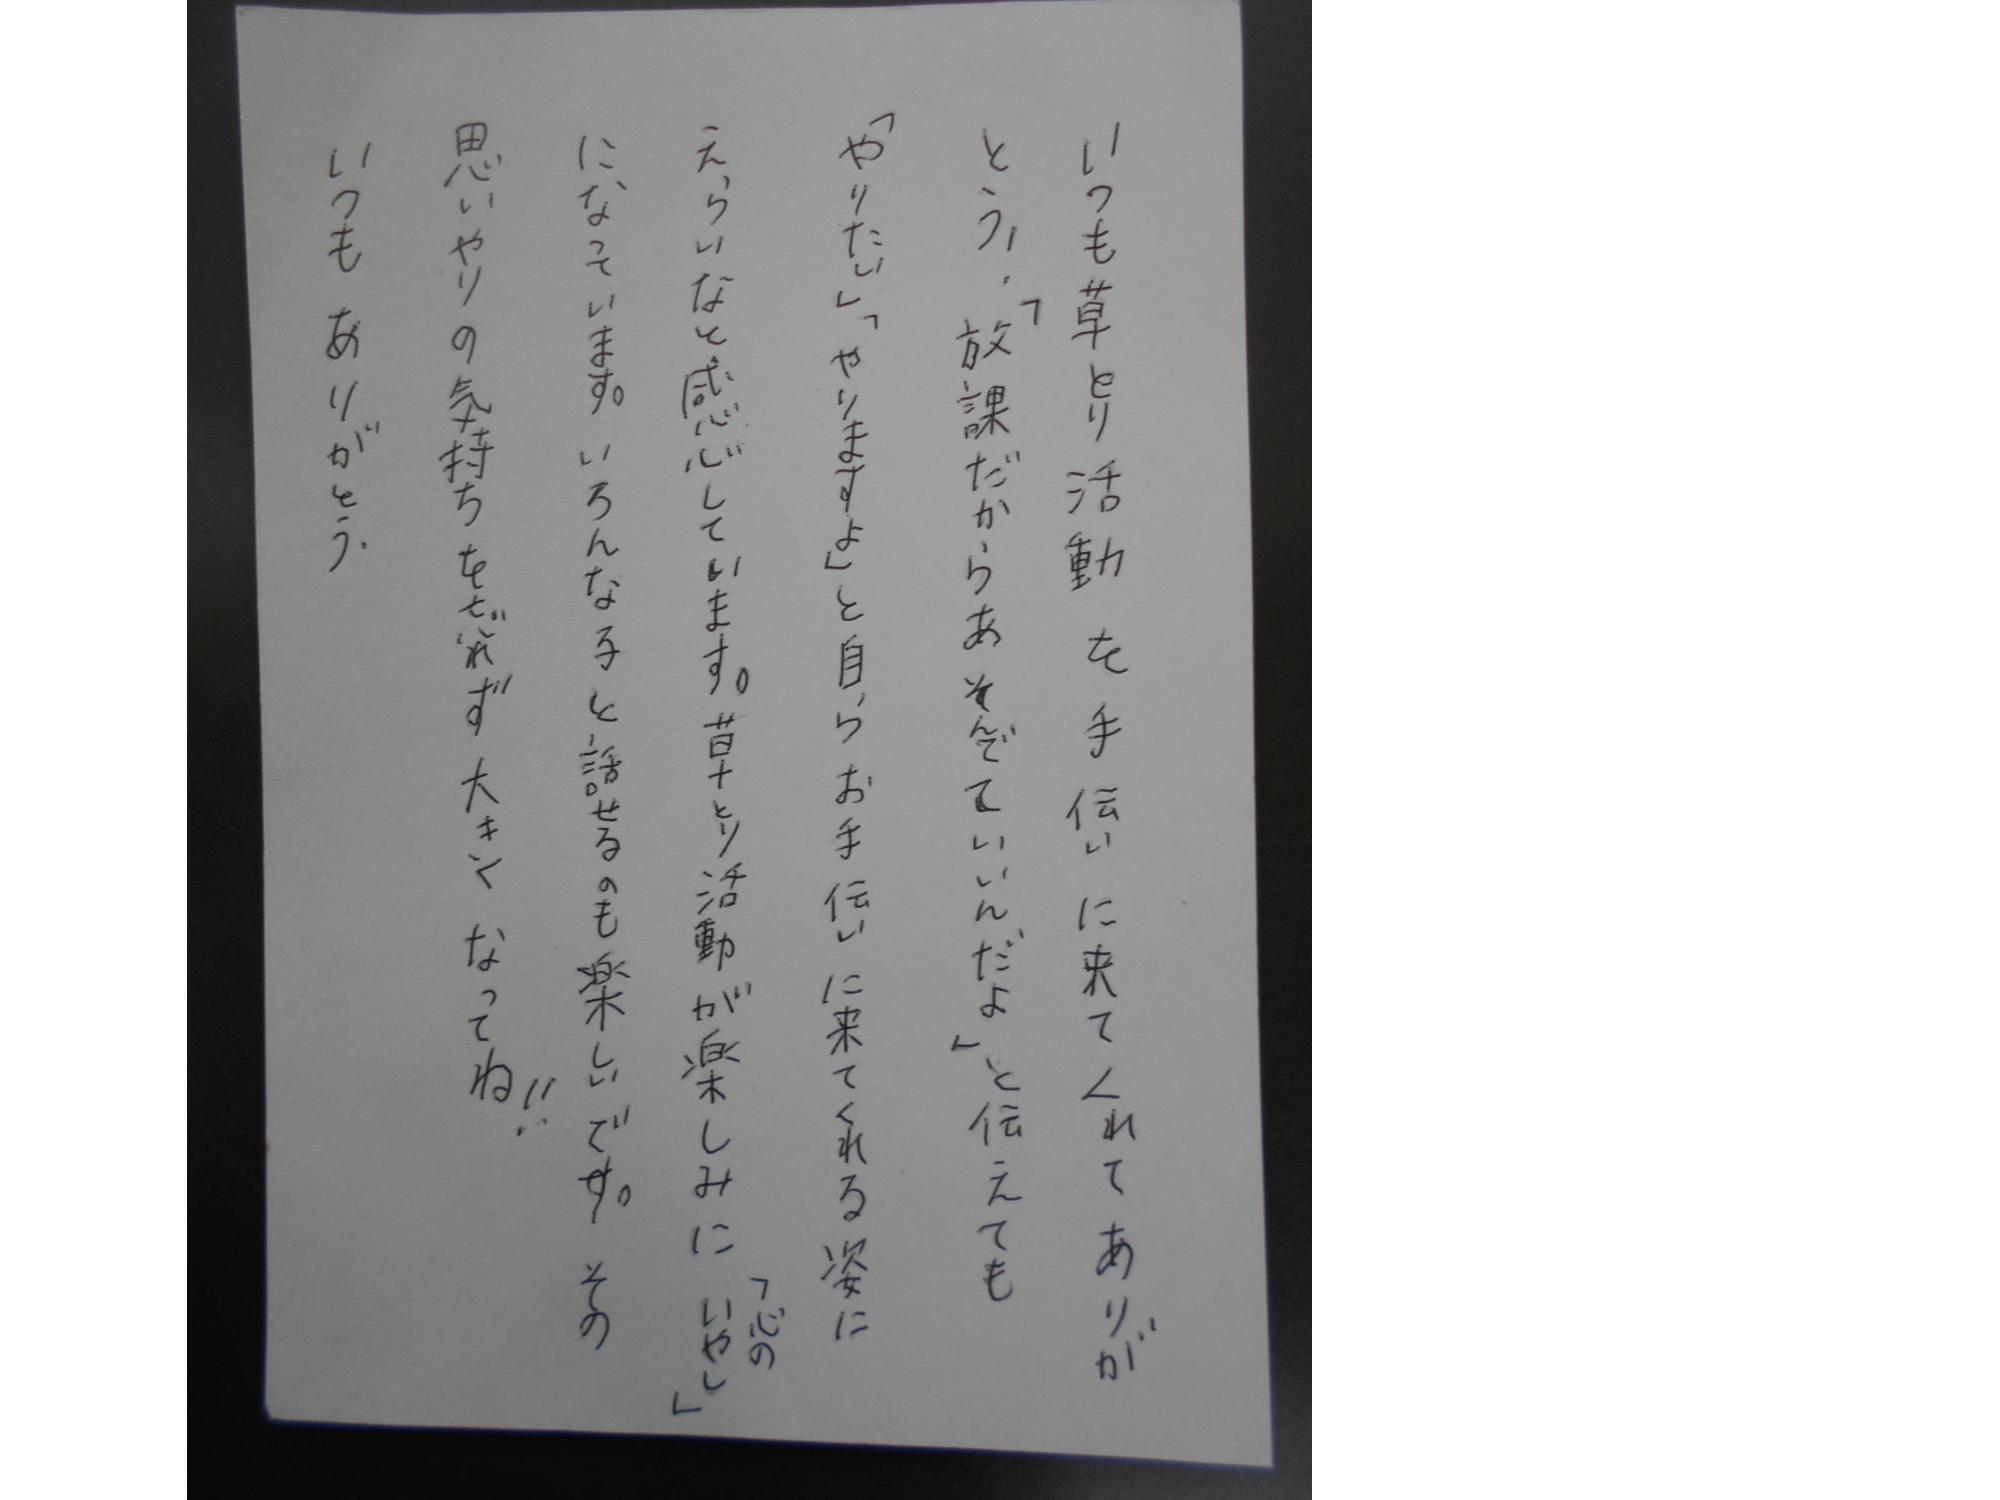 いつも草とり活動を手伝いに来てくれてありが
とう!.「放課だからあそんでていいんだよ」と伝えても
「やりたい」「やりますよ」と自らお手伝いに来てくれる姿に
えらいなと感心しています。草とり活動が楽しみに「心のいやし」
になっています。いろんな子と話せるのも楽しいです。その
思いやりの気持ちをぜれず大きくなってね!!
いつもありがとう.